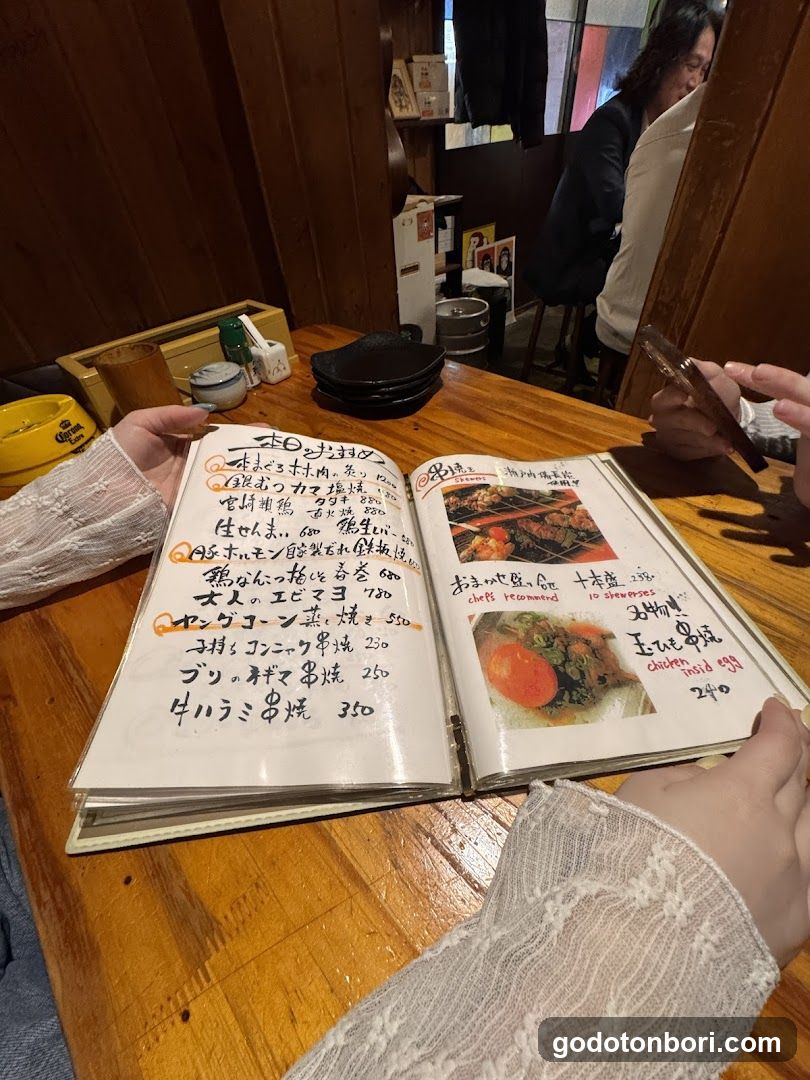 本日のおすすめ
本まぐろホホ肉の炙り 1200
銀むつカマ塩焼
宮崎親鶏 タタキ 880
直火焼 880
生せんまい 680 鶏生レバー
豚ホルモン自家製だれ鉄板焼
鶏なんこつ梅しそ春巻 680
大人のエビマヨ 780
ヤングコーン蒸し焼き 550
子持ちコンニャク串焼 230
ブリのネギマ串焼 250
牛ハラミ串焼 350
串焼き
skewers
瀬戸内備長炭
使用!!
おまかせ盛り合せ 十本盛
chefs recommend 10 skewerses
名物!!
玉ひも串焼
chicken
insid egg
240
Corona
Extra
godotonbori.com